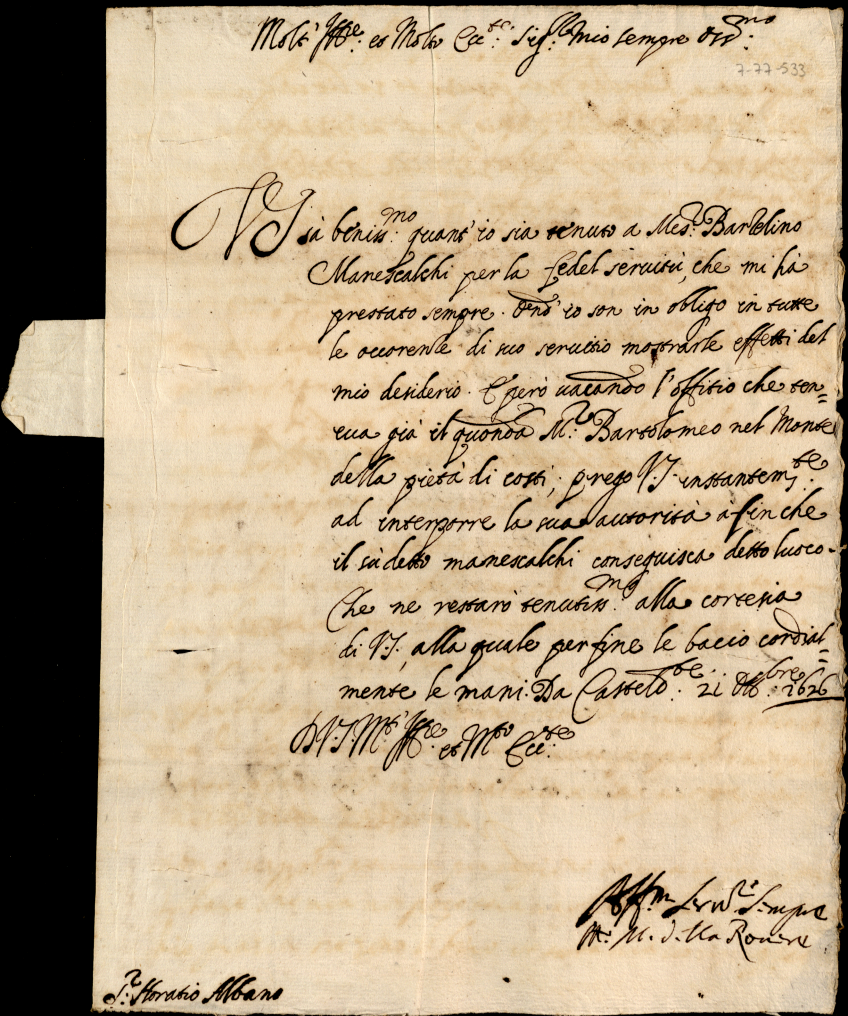 Molt' Ill.re et Molto Ecc.te Sig.r mio sempre Oss.mo
7-77-533
V.S. sà beniss.mo quant' io sia tenuto a Mes.r Bartolino
Manescalchi per la fedel servitù, che mi hà
prestato sempre. Ond' io son in obligo in tutte
le occorenze di suo servitio mostrarle effetti del
mio desiderio. E però vacando l'offitio che ten=
eva già il quonda M.r Bartolomeo nel Monte
della pietà di costì, prego V.S. instantem.te
ad interporre la sua autorità à fin che
il sù detto manescalchi conseguisca detto luoco.
Che ne restarò tenutiss.mo alla cortesia
di V.S., alla quale per fine le bacio cordial=
mente le mani. Da Casteld.te 21 Ott.bre 1626
D V.S. M.t' Ill.re et M.to Ecc.te
Aff.m Ser.re Sempre
M. della Rovere
S.r Horatio Albano